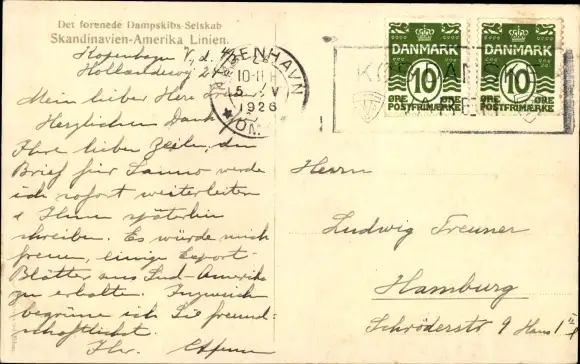 Det forenede Dampskibs-Selskab
Skandinavien-Amerika Linien.
Kopenhagen V, d. 4/
Hollændervej 2
Mein lieber Herr
Herzlichen Dank
Ihre lieben Zeilen, den
Brief für werde
ich sofort weiterleiten
& Ihnen späterhin
schreiben. Es würde mich
freuen, einige
Blätter aus Süd-Amerika
zu erhalten. Inzwischen
begrüsse ich Sie freund-
schaftlichst.
Ihr.
KØBENHAVN
10-11 F
5. V
1926
OMK
DANMARK
10
ØRE ØRE
POSTFRIMÆRKE
DANMARK
10
ØRE ØRE
POSTFRIMÆRKE
Herrn
Ludwig Treuner
Hamburg
Schröderstr 9 Haus 1